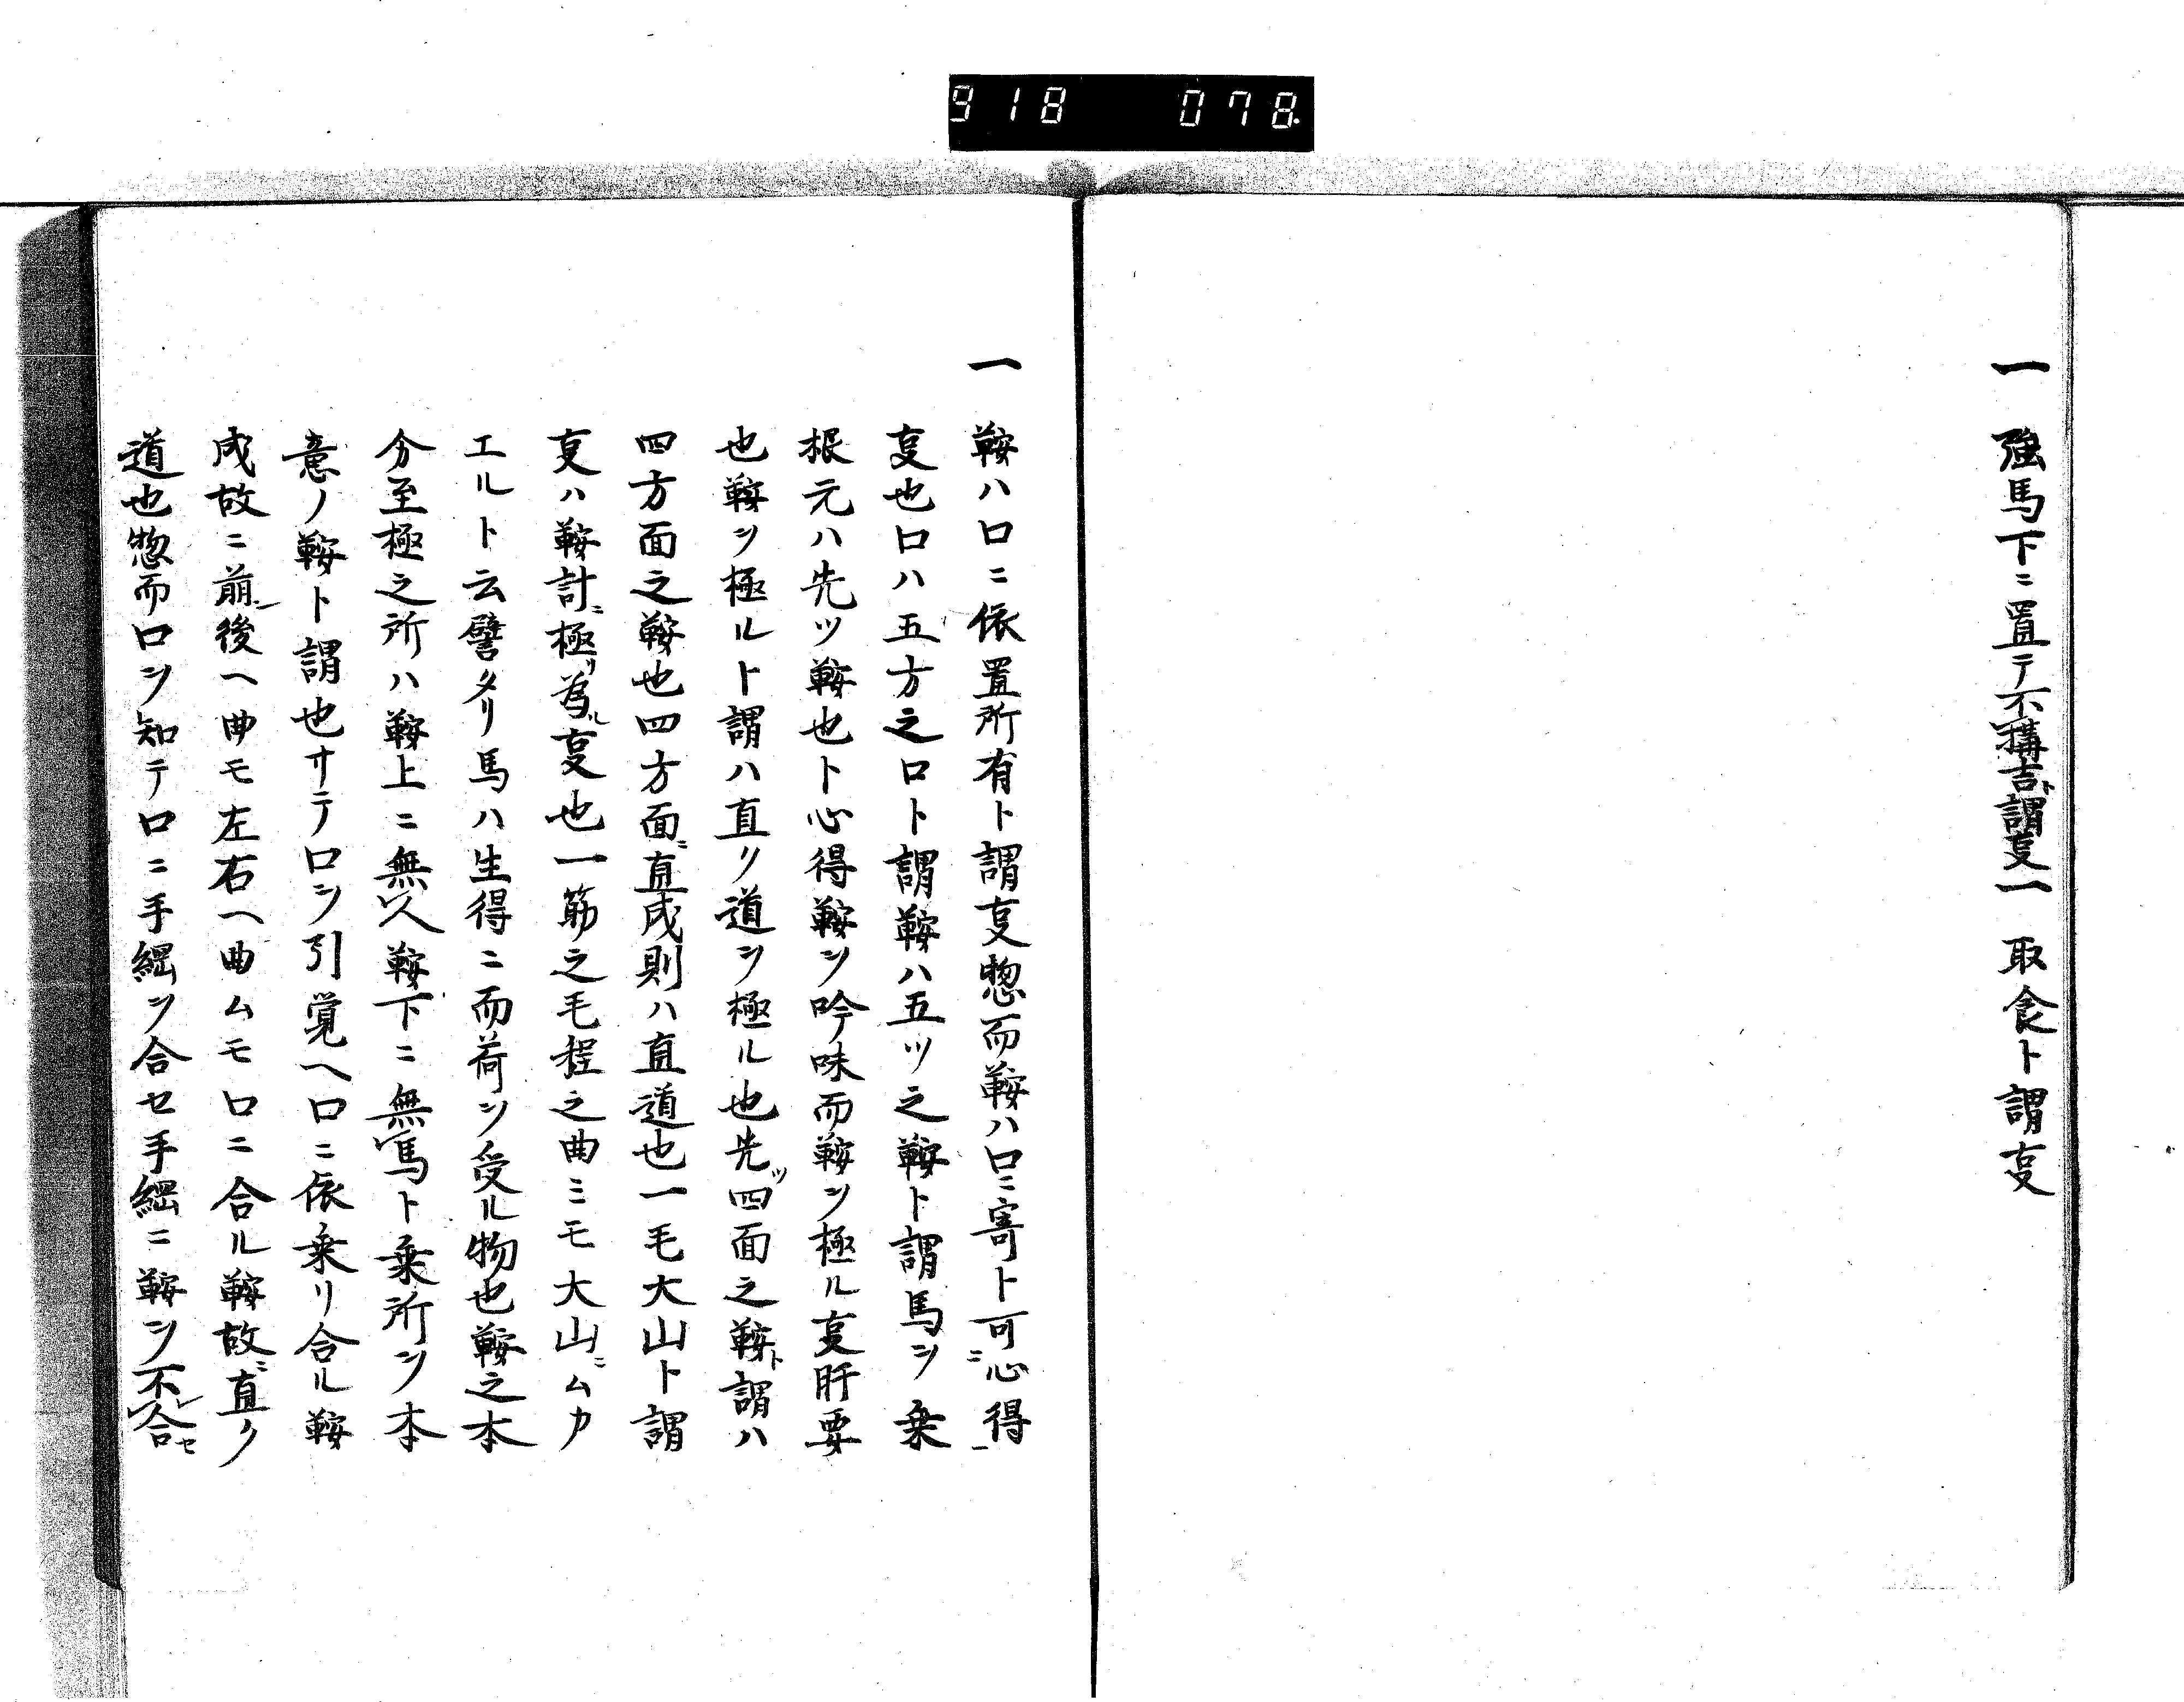 918 078.
一 強馬下ニ置テ不構吉ト謂㕝一 取食ト謂㕝
一 鞍ハ口ニ依置所有ト謂㕝惣而鞍ハ口ニ寄ト可ニ心得一
㕝也口ハ五方之口ト謂鞍ハ五ツ之鞍ト謂馬ヲ乗
根元ハ先ツ鞍也ト心得鞍ヲ吟味而鞍ヲ極ル㕝肝要
也鞍ヲ極ルト謂ハ直リ道ヲ極ル也先ツ四面之鞍ト謂ハ
四方面之鞍也四方面ニ直成則ハ直道也一毛大山ト謂
㕝ハ鞍計ニ極リ為ル㕝也一筋之毛程之曲ミモ大山ニムカ
エルト云譬タリ馬ハ生得ニ而荷ヲ受ル物也鞍之本
分至極之所ハ鞍上ニ無人鞍下ニ無馬ト乗所ヲ本
意ノ鞍ト謂也サテ口ヲ引覚ヘ口ニ依乗リ合ル鞍
成故ニ前後ヘ曲モ左右ヘ曲ムモ口ニ合ル鞍故ニ直ク
道也惣而口ヲ知テ口ニ手綱ヲ合セ手綱ニ鞍ヲ不レ合セ